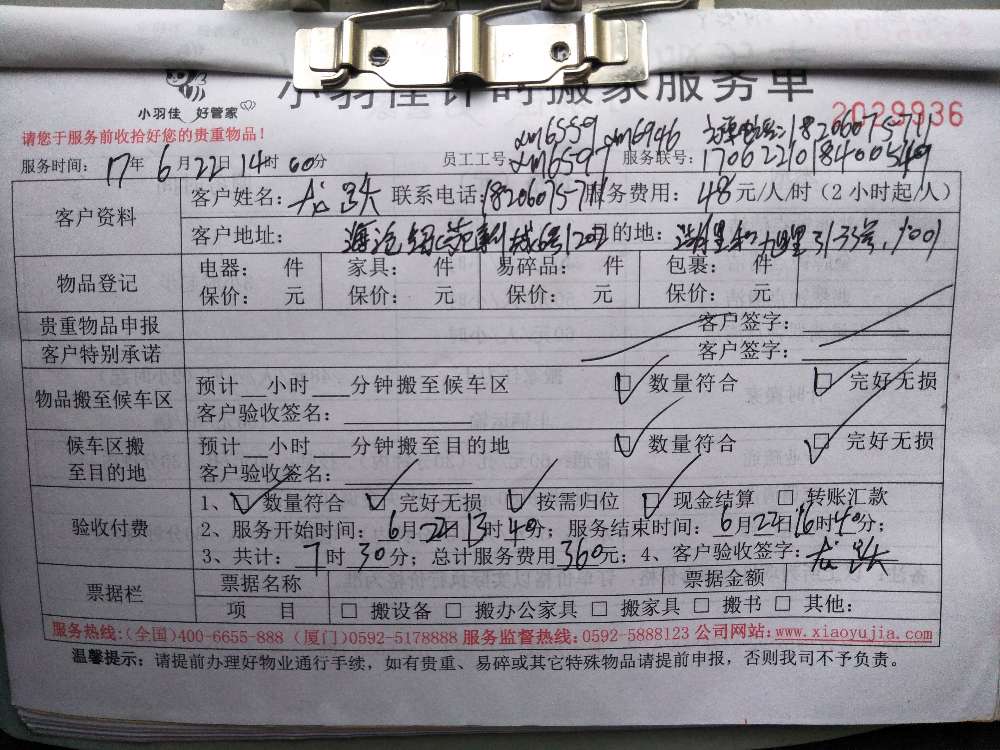 小羽佳 好管家
小羽佳计时搬家服务单
2029936
请您于服务前收拾好您的贵重物品！
xm6559 xm6946 18206075711
服务时间：17年6月22日14时00分 员工工号：xm6597 服务联号：
客户资料 客户姓名： 联系电话：18206075711 服务费用：48元/人/时（2小时起/人）
客户地址： 目的地：
物品登记 电器： 件 家具： 件 易碎品： 件 包裹： 件
保价： 元 保价： 元 保价： 元 保价： 元
贵重物品申报 客户签字：
客户特别承诺 客户签字：
物品搬至候车区 预计__小时___分钟搬至候车区 ☑ 数量符合 ☑ 完好无损
客户验收签名：
候车区搬至目的地 预计__小时___分钟搬至目的地 ☑ 数量符合 ☑ 完好无损
客户验收签名：
验收付费 1、☑ 数量符合 ☑ 完好无损 ☑ 按需归位 ☑ 现金结算 □ 转账汇款
2、服务开始时间：6月22日13时40分；服务结束时间：6月22日16时40分；
3、共计：7时30分；总计服务费用360元；4、客户验收签字：
票据栏 票据名称 票据金额
项 目 □ 搬设备 □ 搬办公家具 □ 搬家具 □ 搬书 □ 其他：
服务热线：(全国)400-6655-888 (厦门)0592-5178888 服务监督热线：0592-5888123 公司网站：www.xiaoyujia.com
温馨提示：请提前办理好物业通行手续，如有贵重、易碎或其它特殊物品请提前申报，否则我司不予负责。